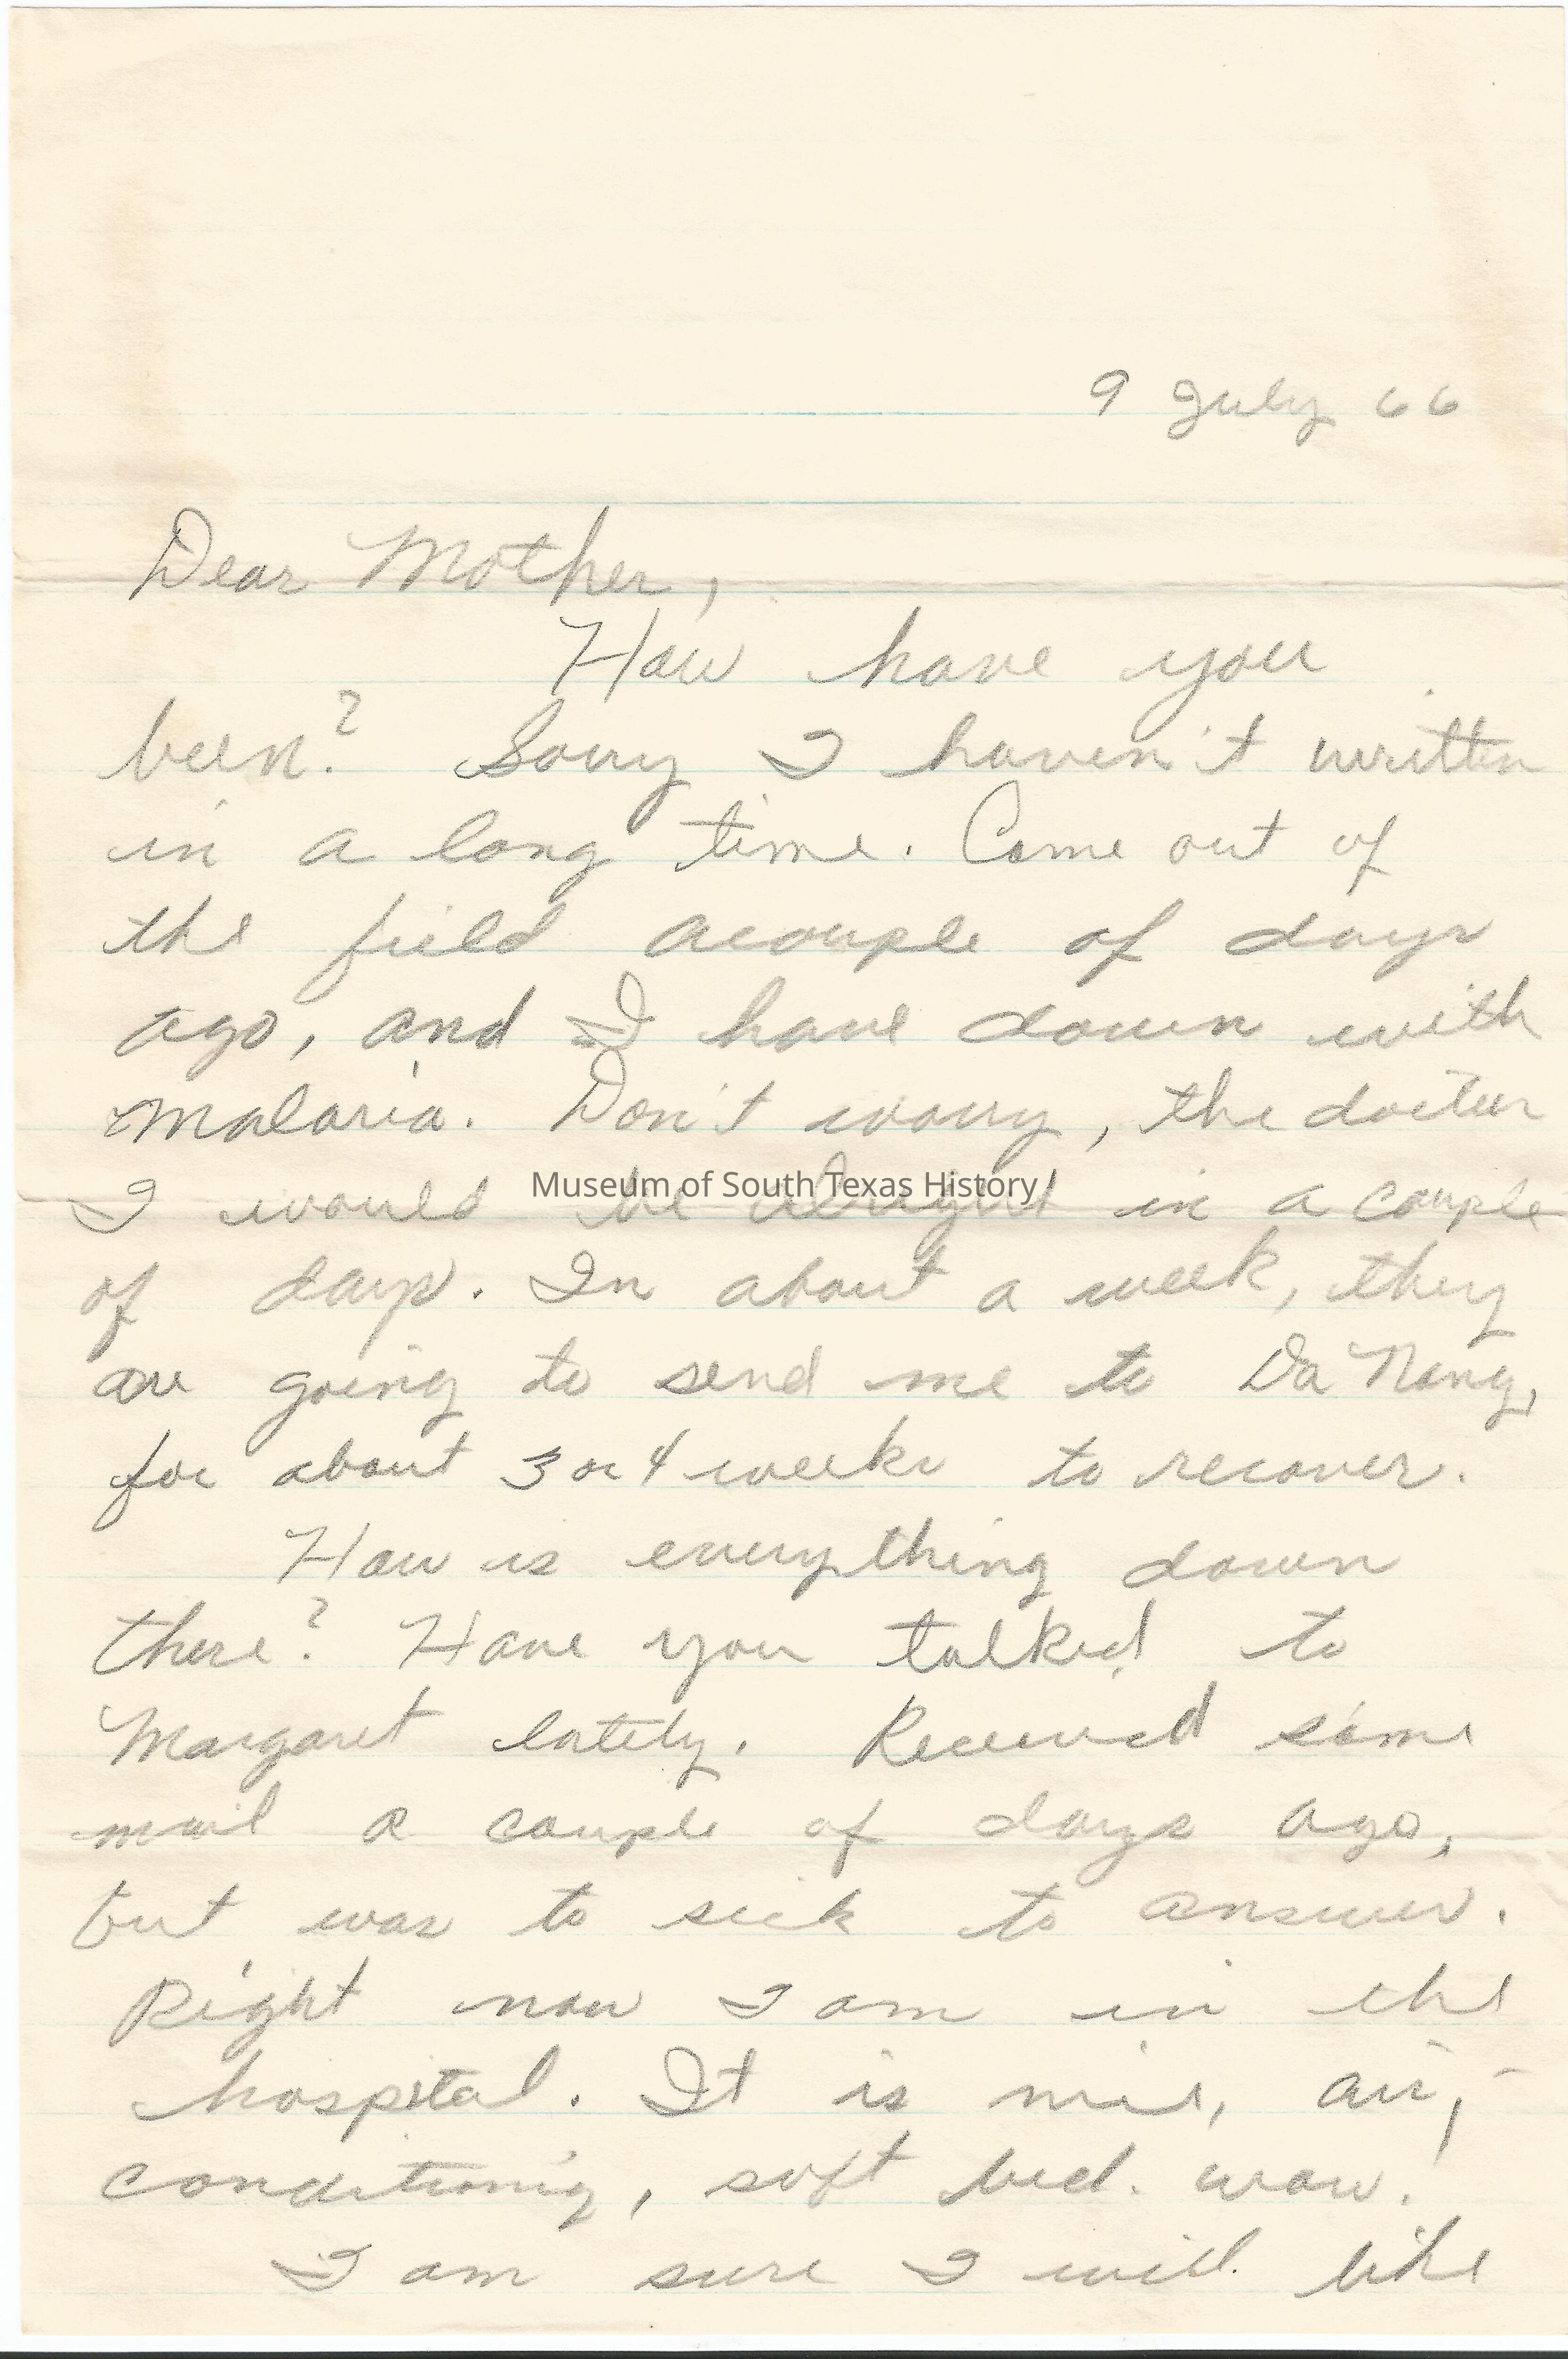 9 July 66
Dear Mother,
How have you
been? Sorry I haven't written
in a long time. Came out of
the field acouple of days
ago, and I have down with
malaria. Don't worry, the doctor
I would be alright in a couple
Museum of South Texas History
of days. In about a week, they
are going to send me to Da Nang,
for about 3 or 4 weeks to recover.
How is everything down
there? Have you talked to
Margaret lately. Received some
mail a couple of days ago,
but was to sick to answer.
Right now I am in the
hospital. It is nice, air-
conditioning, soft bed. wow!
I am sure I will like